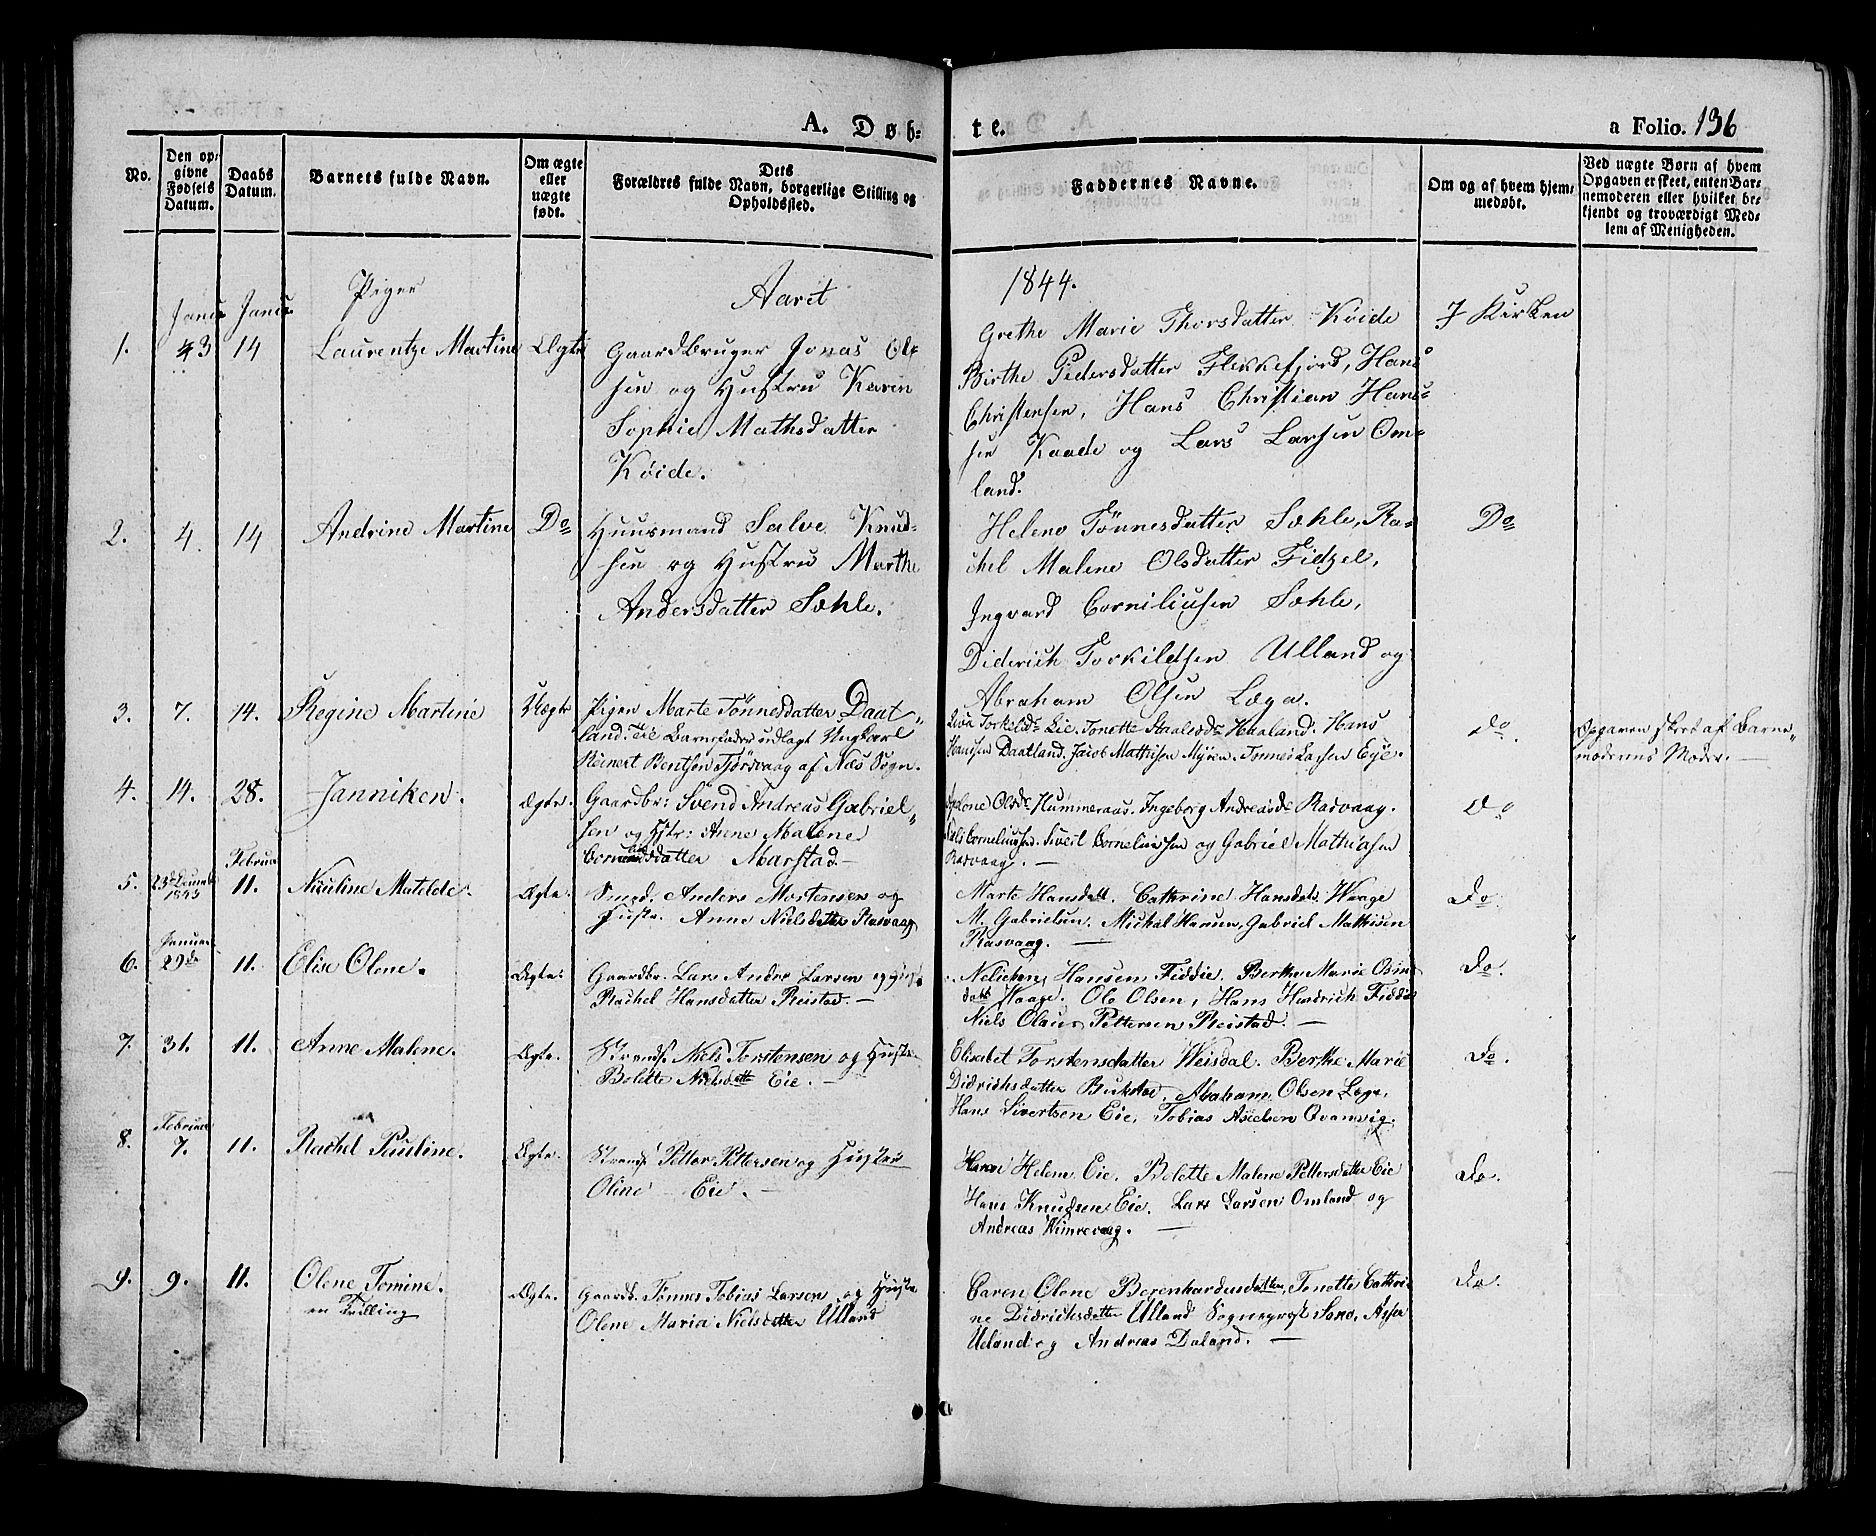 A. Døb-
te.
a Folio. 136
No.
Den op-
givne
Fødsels
Datum.
Daabs
Datum.
Barnets fulde Navn.
Om ægte
eller
uægte
født.
Dets
Forældres fulde Navn, borgerlige Stilling og
Opholdssted.
Faddernes Navne.
Om og af hvem hjem-
medøbt.
Ved uægte Børn af hvem
Opgaven er skeet, enten Bar-
nemoderen eller hvilket be-
kjendt og troværdigt Med-
lem af Menigheden.
Piger
Aaret
1844.
Janu Janu
1. 3 14 Laurentze Martine Ægte
Gaardbruger Jonas Ol-
sen og Hustru Karen
Sophie Mathsdatter
Køide.
Grethe Marie Thorsdatter Køide
Birthe Pedersdatter Flekkefjord, Hans
Christensen, Hans Christian Han-
sen Kaade og Lars Larsen Om-
land.
I Kirken
2. 4. 14 Andrine Martine Do
Huusmand Salve Knud-
sen og Hustru Marthe
Andersdatter Sæhle.
Helene Tønnesdatter Sæhle, Ra-
chel Malene Olsdatter Fidzel,
Ingvard Corneliusen Sæhle,
Diderich Torkildsen Ulland og
Abraham Olsen Læga.
Do
3. 7. 14. Regine Martine Uægte
Pigen Marte Tønnesdatter Daat-
land. Til Barnefader udlagt Ungkarl
Reinert Berntsen Tjørsvaag af Næs Sogn.
Torkildsdr Eie. Tonette Staalesdr Haaland. Hans
Hansen Daatland. Jacob Mathisen Myren. Tønnes Larsen Eie.
do.
Opgaven skeet af Barne-
moderens Moder. —
4. 14. 28. Janniken. Ægte.
Gaardbr: Svend Andreas Gabriel-
sen og Hstr: Anne Malene
datter Marstad. —
Olsdr Hummeraas. Ingeborg Andreasdr Rasvaag.
Corneliussen. Sivert Corneliussen og Gabriel Mathiasen
Rasvaag. —
do
Februar
5. 1843 11. Matilde. Ægte.
Smed. Anders Mortensen og
Hustr. Anne Nielsdatter Rasvaag
Marte Hansdatt. Cathrine Hansdatt. Waage
M. Gabrielsen. Mickal Hansen, Gabriel Mathisen
Rasvaag. —
Do.
Januar
6. 29de 11. Elise Olene. Ægte.
Gaardbr. Lars Andr. Larsen og Hust.
Rachel Hansdatter Reistad. —
Hansen Fiddie. Berthe Marie
datt Waage. Ole Olsen, Hans Hendrich Fiddie
Niels Olaus Pettersen Reistad. —
Do.
7. 31. 11. Anne Malene. Ægte.
Strands. Niels Torstensen og Hustr.
Bolette Nielsdatt Eie. —
Elisabet Torstensdatter Weisdal. Berthe Marie
Didrichsdatter. Abraham Olsen Lega.
Hans Sivertsen Eie, Tobias Aselsen Qvanvig.
Do.
Februar
8. 7. 11. Rachel Pauline. Ægte.
Strands Petter Pettersen og Hustru
Oline — Eie. —
Helene Eie. Bolette Malene Pettersdatter Eie
Hans Knudsen Eie. Lars Larsen Omland og
Andreas.
Do.
9. 9. 11. Olene Tomine. Ægte.
en Tvilling
Gaardb. Tønnes Tobias Larsen og Hustr
Olene Maria Nielsdatter Ulland
Caren Olene Berenhardusdatter, Tonette Cathri-
ne Didrichsdatter Ulland, Asser
Ueland og Andreas Daland. —
Do.